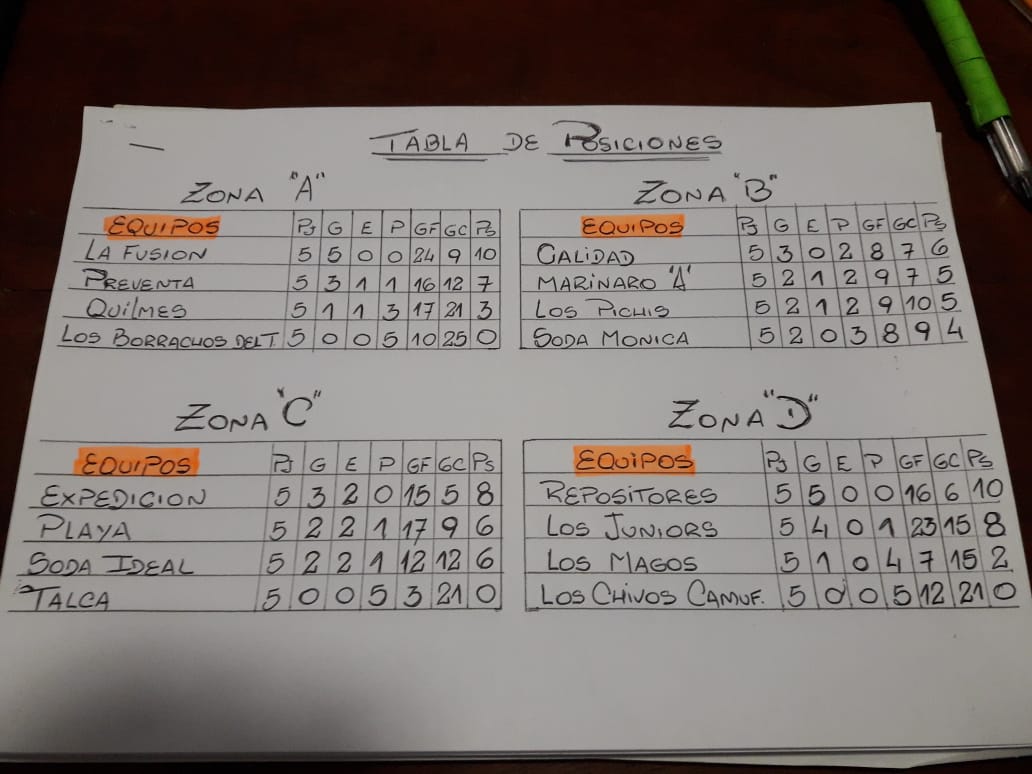 TABLA DE POSICIONES
ZONA "A"
EQUIPOS PJ G E P GF GC PS
LA FUSION 5 5 0 0 24 9 10
PREVENTA 5 3 1 1 16 12 7
QUILMES 5 1 1 3 17 21 3
LOS BORRACHOS DEL T. 5 0 0 5 10 25 0
ZONA "B"
EQUIPOS PJ G E P GF GC PS
CALIDAD 5 3 0 2 8 7 6
MARINARO "A" 5 2 1 2 9 7 5
LOS PICHIS 5 2 1 2 9 10 5
SODA MONICA 5 2 0 3 8 9 4
ZONA "C"
EQUIPOS PJ G E P GF GC PS
EXPEDICION 5 3 2 0 15 5 8
PLAYA 5 2 2 1 17 9 6
SODA IDEAL 5 2 2 1 12 12 6
TALCA 5 0 0 5 3 21 0
ZONA "D"
EQUIPOS PJ G E P GF GC PS
REPOSITORES 5 5 0 0 16 6 10
LOS JUNIORS 5 4 0 1 23 15 8
LOS MAGOS 5 1 0 4 7 15 2
LOS CHIVOS CAMUF. 5 0 0 5 12 21 0